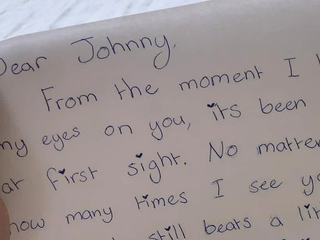 Dear Johnny,
From the moment I
my eyes on you, its been
at first sight. No matter
how many times I see
still beats a